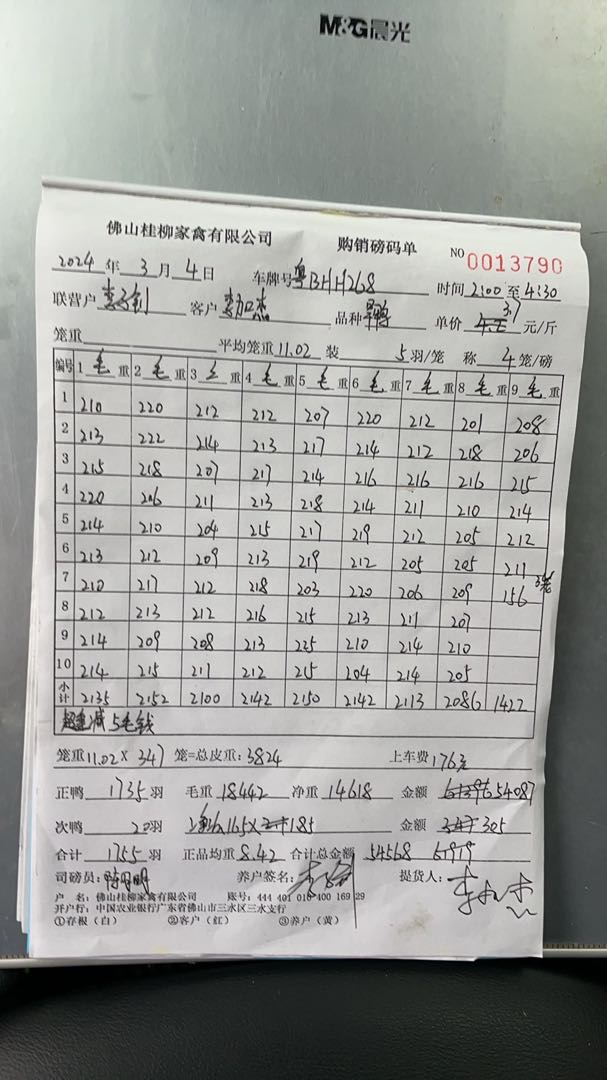 M&G晨光
佛山桂柳家禽有限公司 购销磅码单 NO 0013790
2024 年 3 月 4 日 车牌号 粤BHH268 时间 2:00 至 4:30
联营户 客户 品种 单价 3.7 元/斤
笼重 平均笼重 11.02 装 5 羽/笼 称 4 笼/磅
编号 1 毛 重 2 毛 重 3 重 4 毛 重 5 毛 重 6 毛 重 7 毛 重 8 毛 重 9 毛 重
1 210 220 212 212 207 220 212 201 208
2 213 222 214 213 217 214 212 218 206
3 215 218 207 217 214 216 216 216 215
4 220 206 211 213 218 214 211 210 214
5 214 210 204 215 217 219 212 205 212
6 213 212 209 213 219 212 205 205 211
7 210 217 212 218 203 220 206 209 156 3笼
8 212 213 212 216 215 213 211 207
9 214 209 208 213 225 210 214 210
10 214 215 211 212 215 204 214 205
小计 2135 2152 2100 2142 2150 2142 2113 2086 1422
超重减5毛钱
笼重 11.02 X 347 笼=总皮重: 3824 上车费 176元
正鸭 1735 羽 毛重 18442 净重 14618 金额 54087
次鸭 20 羽 165X 185 金额 305
合计 1755 羽 正品均重 8.42 合计总金额 54568
司磅员: 养户签名: 提货人:
户 名: 佛山桂柳家禽有限公司 账号: 444 401 010 400 169 29
开户行: 中国农业银行广东省佛山市三水区三水支行
①存根（白） ②客户（红） ③养户（黄）